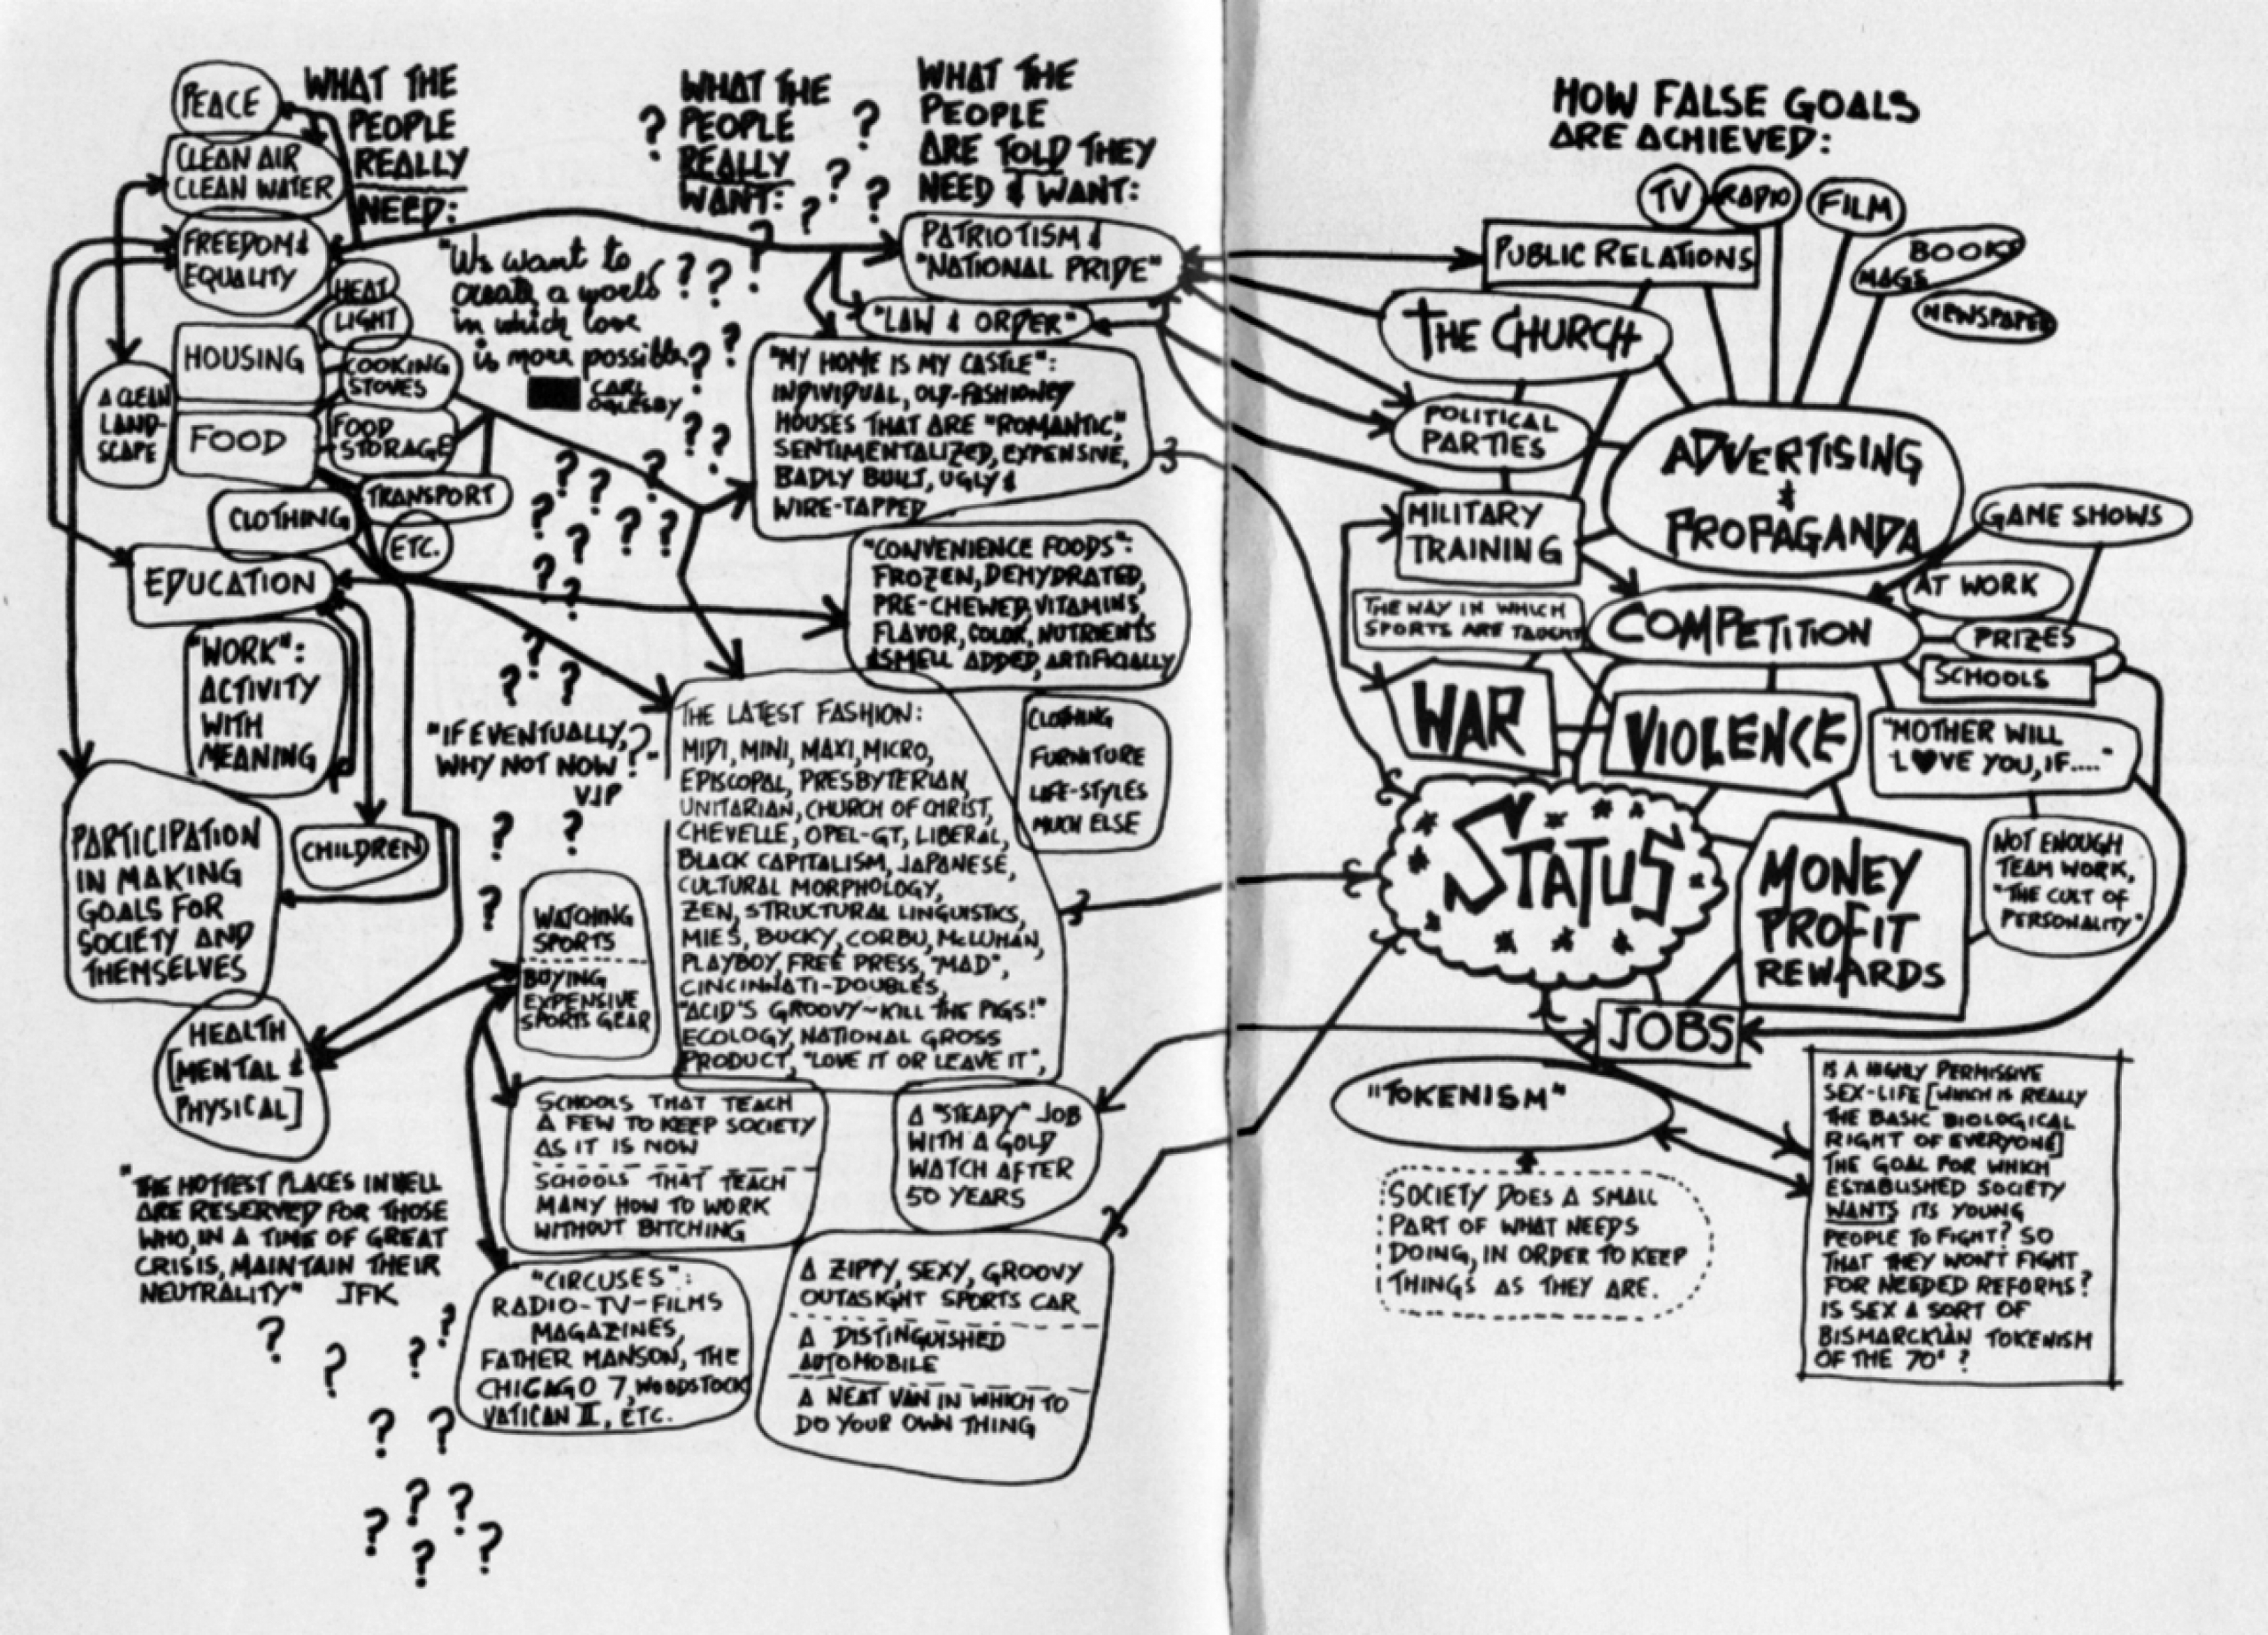 WHAT THE
PEOPLE
REALLY
NEED:
PEACE
CLEAN AIR
CLEAN WATER
FREEDOM &
EQUALITY
HEAT
LIGHT
HOUSING
COOKING
STOVES
A CLEAN
LAND-
SCAPE
FOOD
FOOD
STORAGE
TRANSPORT
CLOTHING
ETC.
EDUCATION
"WORK":
ACTIVITY
WITH
MEANING
PARTICIPATION
IN MAKING
GOALS FOR
SOCIETY AND
THEMSELVES
CHILDREN
HEALTH
[MENTAL &
PHYSICAL]
"THE HOTTEST PLACES IN HELL
ARE RESERVED FOR THOSE
WHO, IN A TIME OF GREAT
CRISIS, MAINTAIN THEIR
NEUTRALITY" JFK
? ? ? ?
? ?
? ?
? ?
?
WHAT THE
? PEOPLE ?
REALLY ?
WANT: ? ?
"We want to ?
create a world ? ? ?
in which love
is more possible. ? ?
CARL
OGLESBY
? ?
? ? ?
? ? ?
?
? ?
? ? ?
"IF EVENTUALLY, ?
WHY NOT NOW?"
VJP
? ?
?
WHAT THE
PEOPLE
ARE TOLD THEY
NEED & WANT:
PATRIOTISM &
"NATIONAL PRIDE"
"LAW & ORDER"
"MY HOME IS MY CASTLE":
INDIVIDUAL, OLD-FASHIONED
HOUSES THAT ARE "ROMANTIC",
SENTIMENTALIZED, EXPENSIVE,
BADLY BUILT, UGLY &
WIRE-TAPPED
"CONVENIENCE FOODS":
FROZEN, DEHYDRATED,
PRE-CHEWED, VITAMINS,
FLAVOR, COLOR, NUTRIENTS
& SMELL ADDED, ARTIFICIALLY
THE LATEST FASHION:
MIDI, MINI, MAXI, MICRO,
EPISCOPAL, PRESBYTERIAN,
UNITARIAN, CHURCH OF CHRIST,
CHEVELLE, OPEL-GT, LIBERAL,
BLACK CAPITALISM, JAPANESE,
CULTURAL MORPHOLOGY,
ZEN, STRUCTURAL LINGUISTICS,
MIES, BUCKY, CORBU, McLUHAN,
PLAYBOY, FREE PRESS, "MAD",
CINCINNATI-DOUBLES,
"ACID'S GROOVY~KILL THE PIGS!"
ECOLOGY, NATIONAL GROSS
PRODUCT, "LOVE IT OR LEAVE IT",
CLOTHING
FURNITURE
LIFE-STYLES
MUCH ELSE
WATCHING
SPORTS
BUYING
EXPENSIVE
SPORTS GEAR
SCHOOLS THAT TEACH
A FEW TO KEEP SOCIETY
AS IT IS NOW
SCHOOLS THAT TEACH
MANY HOW TO WORK
WITHOUT BITCHING
A "STEADY" JOB
WITH A GOLD
WATCH AFTER
50 YEARS
"CIRCUSES":
RADIO-TV-FILMS
MAGAZINES,
FATHER MANSON, THE
CHICAGO 7, WOODSTOCK
VATICAN II, ETC.
A ZIPPY, SEXY, GROOVY
OUTASIGHT SPORTS CAR
A DISTINGUISHED
AUTOMOBILE
A NEAT VAN IN WHICH TO
DO YOUR OWN THING
HOW FALSE GOALS
ARE ACHIEVED:
TV
RADIO
FILM
BOOKS
MAGS
NEWSPAPER
PUBLIC RELATIONS
THE CHURCH
POLITICAL
PARTIES
ADVERTISING
&
PROPAGANDA
MILITARY
TRAINING
GAME SHOWS
AT WORK
THE WAY IN WHICH
SPORTS ARE TAUGHT
COMPETITION
PRIZES
SCHOOLS
WAR
VIOLENCE
"MOTHER WILL
L♥VE YOU, IF...."
STATUS
MONEY
PROFIT
REWARDS
NOT ENOUGH
TEAM WORK,
"THE CULT OF
PERSONALITY"
JOBS
"TOKENISM"
SOCIETY DOES A SMALL
PART OF WHAT NEEDS
DOING, IN ORDER TO KEEP
THINGS AS THEY ARE.
IS A HIGHLY PERMISSIVE
SEX-LIFE [WHICH IS REALLY
THE BASIC BIOLOGICAL
RIGHT OF EVERYONE]
THE GOAL FOR WHICH
ESTABLISHED SOCIETY
WANTS ITS YOUNG
PEOPLE TO FIGHT? SO
THAT THEY WON'T FIGHT
FOR NEEDED REFORMS?
IS SEX A SORT OF
BISMARCKIAN TOKENISM
OF THE 70' ?